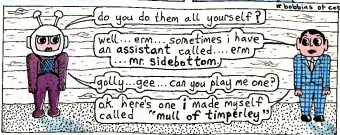 * bobbins of cet
do you do them all yourself?
well...erm...sometimes i have
an assistant called....erm
...mr. sidebottom.
golly...gee...can you play me one?
ok, here's one i made myself
called "mull of timperley"